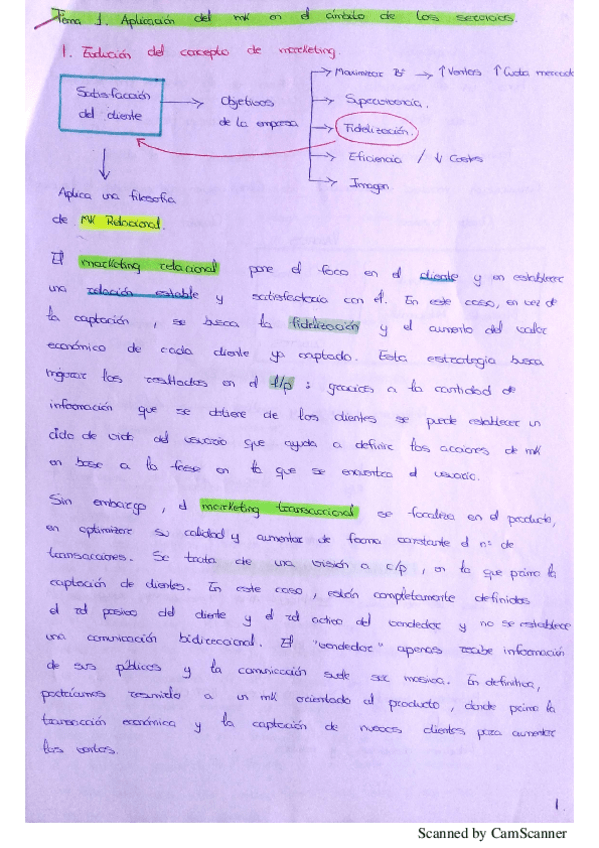 Tema 1. Aplicación del mk en el ámbito de los servicios.
1. Evolución del concepto de marketing.
Satisfacción
del cliente
Objetivos
de la empresa
Maximizar Bº → ↑ Ventas ↑ Cuota mercado
Supervivencia.
Fidelización.
Eficiencia / ↓ Costes
Imagen.
Aplica una filosofía
de MK Relacional.
El marketing relacional pone el foco en el cliente y en establecer
una relación estable y satisfactoria con él. En este caso, en vez de
la captación, se busca la fidelización y el aumento del valor
económico de cada cliente ya captado. Esta estrategia busca
mejorar los resultados en el l/p; gracias a la cantidad de
información que se obtiene de los clientes se puede establecer un
ciclo de vida del usuario que ayuda a definir las acciones de mk
en base a la fase en la que se encuentra el usuario.
Sin embargo, el marketing transaccional se focaliza en el producto,
en optimizar su calidad y aumentar de forma constante el nº de
transacciones. Se trata de una visión a c/p, en la que prima la
captación de clientes. En este caso, están completamente definidos
el rol pasivo del cliente y el rol activo del vendedor y no se establece
una comunicación bidireccional. El "vendedor" apenas recibe información
de sus públicos y la comunicación suele ser masiva. En definitiva,
podríamos resumirlo a un mk orientado al producto, donde prima la
transacción económica y la captación de nuevos clientes para aumentar
las ventas.
1.
Scanned by CamScanner